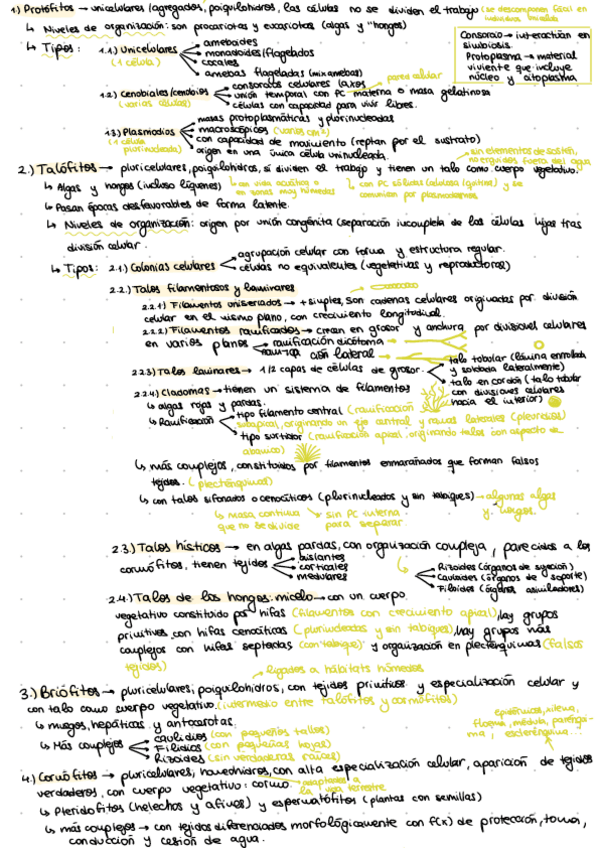 1.) Protófitos → unicelulares/agregados, poiquilohidros, las células no se dividen el trabajo (se descomponen fácil en
↳ Niveles de organización: son procariotas y eucariotas (algas y "hongos)
Consorcio → interactúan en
simbiosis.
Protoplasma → material
viviente que incluye
núcleo y citoplasma
↳ Tipos: 1.1) Unicelulares
(1 célula)
ameboides
monadoides/flagelados
cocales
amebas flageladas (mixamebas)
1.2) Cenobiales/cenobios
(varias células)
consorcios celulares laxos
pared celular
unión temporal con PC materna o masa gelatinosa
células con capacidad para vivir libres.
1.3) Plasmodios
(1 célula
plurinucleada)
masas protoplasmáticas y plurinucleadas
macroscópicos (varios cm²)
con capacidad de movimiento (reptan por el sustrato)
origen en una única célula uninucleada.
sin elementos de sostén,
no erguidos fuera del agua
2.) Talófitos → pluricelulares, poiquilohidros, si dividen el trabajo y tienen un talo como cuerpo vegetativo.
↳ Algas y hongos (incluso líquenes)
↳ con vida acuática o
en zonas muy húmedas
↳ con PC sólidas (celulosa/quitina) y se
comunican por plasmodesmos
↳ Pasan épocas desfavorables de forma latente.
↳ Niveles de organización: origen por unión congénita (separación incompleta de las células hijas tras
división celular.
↳ Tipos: 2.1.) Colonias celulares
agrupación celular con forma y estructura regular.
células no equivalentes (vegetativas y reproductoras)
2.2.) Talos filamentosos y laminares
2.2.1) Filamentos uniseriados → + simples, son cadenas celulares originadas por división
celular en el mismo plano, con crecimiento longitudinal.
2.2.2) Filamentos ramificados → crecen en grosor y anchura por divisiones celulares
en varios planos
ramificación dicótoma
ramificación lateral
2.2.3) Talos laminares → 1/2 capas de células de grosor.
talo tubular (lámina enrollada
y soldada lateralmente)
talo en cordón (talo tubular
con divisiones celulares
hacia el interior)
2.2.4) Cladomas → tienen un sistema de filamentos
↳ algas rojas y pardas.
↳ Ramificación
tipo filamento central (ramificación
subapical, originando un eje central y ramas laterales (pleuridios)
tipo surtidor (ramificación apical, originando talos con aspecto de
abanico)
↳ más complejos, constituidos por filamentos enmarañados que forman falsos
tejidos. (plecténquimas)
↳ con talos sifonados o cenocíticos (plurinucleados y sin tabiques) → algunas algas
y hongos.
↳ masa continua
que no se divide
sin PC interna
para separar.
2.3.) Talos hísticos → en algas pardas, con organización compleja, parecidos a los
cormófitos, tienen tejidos
aislantes
corticales
medulares
Rizoides (órganos de sujeción)
Cauloides (órganos de soporte)
Filoides (órganos asimiladores)
2.4.) Talos de los hongos: micelo → con un cuerpo
vegetativo constituido por hifas (filamentos con crecimiento apical), hay grupos
primitivos con hifas cenocíticas (plurinucleadas y sin tabiques), hay grupos más
complejos con hifas septadas (con tabique) y organización en plecténquimas (falsos
tejidos)
ligados a hábitats húmedos
3.) Briófitos → pluricelulares, poiquilohidros, con tejidos primitivos y especialización celular y
con talo como cuerpo vegetativo. (intermedio entre talófitos y cormófitos)
↳ musgos, hepáticas y antocerotas.
↳ Más complejos
caulidios (con pequeños tallos)
Filidios (con pequeñas hojas)
Rizoides (sin verdaderas raíces)
epidermis, xilema,
floema, médula, parénqui-
ma, esclerénquima...
4.) Cormófitos → pluricelulares, homeohidros, con alta especialización celular, aparición de tejidos
verdaderos, con cuerpo vegetativo: cormo.
adaptados a
la vida terrestre
↳ Pteridofitos (helechos y afines) y espermatófitos (plantas con semillas)
↳ más complejos → con tejidos diferenciados morfológicamente con f(x) de protección, toma,
conducción y cesión de agua.